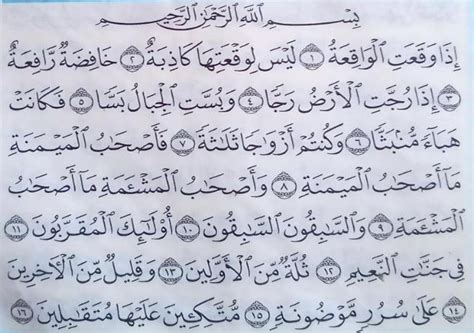 بِسْمِ ٱللَّهِ ٱلرَّحْمَٰنِ ٱلرَّحِيمِ
إِذَا وَقَعَتِ ٱلْوَاقِعَةُ ١ لَيْسَ لِوَقْعَتِهَا كَاذِبَةٌ ٢ خَافِضَةٌ رَّافِعَةٌ
٣ إِذَا رُجَّتِ ٱلْأَرْضُ رَجًّا ٤ وَبُسَّتِ ٱلْجِبَالُ بَسًّا ٥ فَكَانَتْ
هَبَآءً مُّنۢبَثًّا ٦ وَكُنتُمْ أَزْوَاجًا ثَلَاثَةً ٧ فَأَصْحَابُ ٱلْمَيْمَنَةِ
مَآ أَصْحَابُ ٱلْمَيْمَنَةِ ٨ وَأَصْحَابُ ٱلْمَشْـَٔمَةِ مَآ أَصْحَابُ
ٱلْمَشْـَٔمَةِ ٩ وَٱلسَّابِقُونَ ٱلسَّابِقُونَ ١٠ أُوْلَٰٓئِكَ ٱلْمُقَرَّبُونَ ١١
فِي جَنَّاتِ ٱلنَّعِيمِ ١٢ ثُلَّةٌ مِّنَ ٱلْأَوَّلِينَ ١٣ وَقَلِيلٌ مِّنَ ٱلْآخِرِينَ
١٤ عَلَىٰ سُرُرٍ مَّوْضُونَةٍ ١٥ مُّتَّكِـِٔينَ عَلَيْهَا مُتَقَابِلِينَ ١٦